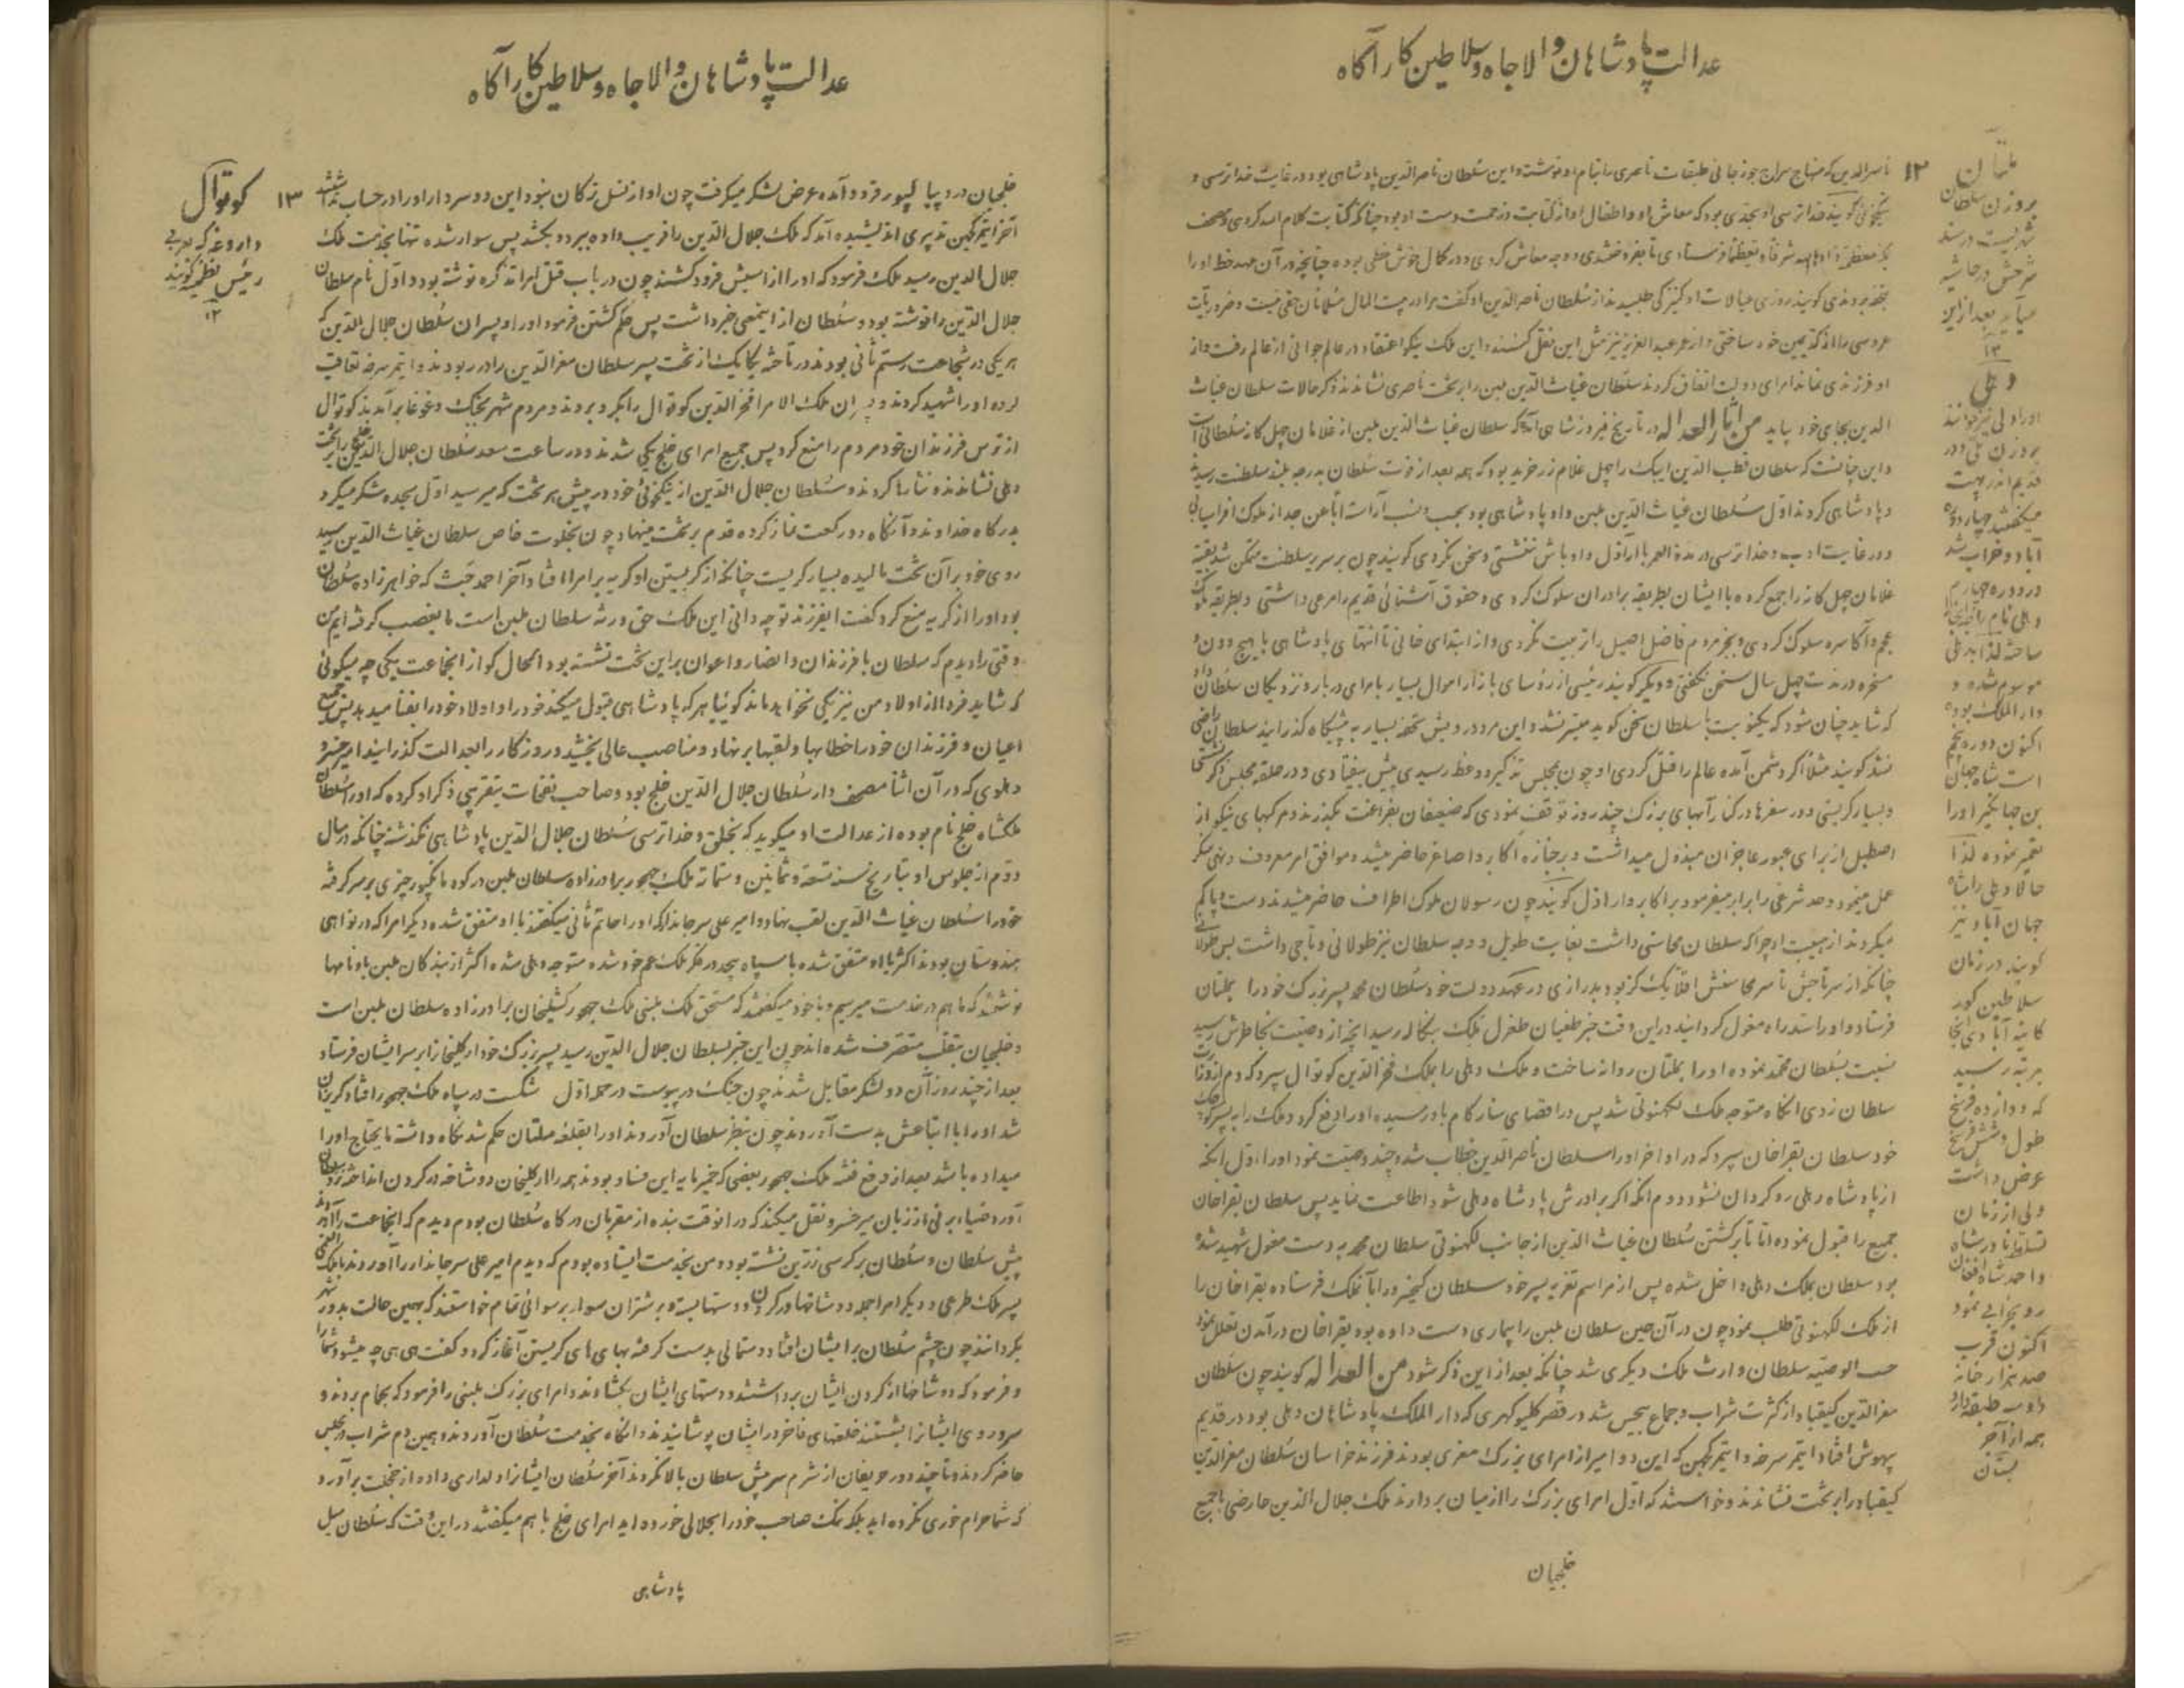 عدالت پادشاهان والاجاه و سلاطین کارآگاه
۱۲
ناصرالدین که منهاج سراج جوزجانی طبقات ناصری را بنام او نوشته و این سلطان ناصرالدین پادشاهی بود در غایت خداترسی و
نیکخوئی گویند خداترسی او بحدی بود که معاش او و اطفال او از کتابت و زحمت دست او بود چنانکه کتابت کلام الله کردی و مصحف
بخفیه بردندی گویند روزی عیالات او کنیزکی طلبیدند از سلطان ناصرالدین او گفت مرا در بیت المال مسلمانان حقی نیست و ضروریات
او فرزندی نماند امرای دولت اتفاق کردند سلطان غیاث الدین بلبن را بر تخت ناصری نشاندند ذکر حالات سلطان غیاث
الدین بجای خود بیاید من آثار العداله در تاریخ فیروزشاهی آمده که سلطان غیاث الدین بلبن از غلامان چهل کانه سلطانی است
و این چنانست که سلطان قطب الدین ایبک را چهل غلام زرخرید بود که همه بعد از فوت سلطان بدرجه بلند سلطنت رسیدند
و پادشاهی کردند اول سلطان غیاث الدین بلبن و او پادشاهی بود بحسب و نسب آراسته اباً عن جد از ملوک افراسیابی
و در غایت ادب و خداترسی در مدة العمر با اراذل و اوباش ننشستی و سخن نکردی گویند چون بر سریر سلطنت متمکن شد بقیه
غلامان چهل کانه را جمع کرده با ایشان بطریقه برادران سلوک کردی و حقوق آشنائی قدیم را مرعی داشتی و بطریقه ملوک
عجم و اکاسره سلوک کردی و بجز مردم فاضل اصیل را تربیت نکردی و از ابتدای خانی تا انتهای پادشاهی با هیچ دون و
مسخره در مدت چهل سال سخن نکفتی و دیگر گویند رئیسی از رؤسای بازار اموال بسیار بامرای دربار و نزدیکان سلطان داد
که شاید چنان شود که یکنوبت با سلطان سخن گوید میسر نشد و این مرد درویش تحفه بسیار به پیشگاه گذرانید سلطان راضی
نشد گویند مثلاً اگر دشمن آمده عالم را قتل کردی او چون بمجلس تذکیر و وعظ رسیدی پیش بیفتادی و در حلقه مجلس ذکر
و بسیار گریستی و در سفرها در کنار آبهای بزرگ چند روز توقف نمودی که ضعیفان بفراغت بگذرند و مرکبهای نیکو از
اصطبل از برای عبور عاجزان مبذول میداشت و بر جنازه اکابر و اصاغر حاضر میشد و موافق امر معروف و نهی منکر
عمل مینمود و حد شرعی را برابر میفرمود بر اکابر و اراذل گویند چون رسولان ملوک اطراف حاضر میشدند دست و پا گم
میکردند از هیبت او چرا که سلطان محاسنی داشت بغایت طویل و وجه سلطان نیز طولانی و تاجی داشت بس طولانی
چنانکه از سر تاجش تا سر محاسنش اقلاً یک گز بود بدرازی در عهد دولت خود سلطان محمد پسر بزرگ خود را بملتان
فرستاد و او را سد راه مغول گردانید در این وقت خبر طغیان طغرل بملک بنگاله رسید آنچه از وصیت بخاطرش رسید
نسبت بسلطان محمد نموده او را بملتان روانه ساخت و ملک دهلی را بملک فخرالدین کوتوال سپرد
خود سلطان بغراخان سپرد که در اواخر او را سلطان ناصرالدین خطاب شد و چند وصیت نمود او را اول آنکه
از پادشاه دهلی روگردان نشود دوم آنکه اگر برادرش پادشاه دهلی شود اطاعت نماید پس سلطان بغراخان
جمیع را قبول نموده اما تا برگشتن سلطان غیاث الدین از جانب لکهنوتی سلطان محمد بدست مغول شهید شده
بود سلطان بملک دهلی داخل شده پس از مراسم تعزیه پسر خود سلطان کیخسرو را بآنملک فرستاده بغراخان را
از ملک لکهنوتی طلب نمود چون در آن حین سلطان بلبن را بیماری دست داده بود بغراخان در آمدن تعلل نمود
حسب الوصیه سلطان وارث ملک دیگری شد چنانکه بعد از این ذکر شود من العداله گویند چون سلطان
معزالدین کیقباد از کثرت شراب و جماع بیحس شد در قصر کلیوکهری که دارالملک پادشاهان دهلی بود در قدیم
بیهوش افتاد ایتمر سرخه و ایتمر کچهن که این دو امیر از امرای بزرگ معزی بودند فرزند خراسان سلطان معزالدین
کیقباد را بر تخت نشاندند و خواستند که اول امرای بزرگ را از میان بردارند ملک جلال الدین عارضی با جمیع
خلجیان
ملتان
بروزن سلطان
شهریست در سند
شرحش در حاشیه
میآید بعد از این
۱۲
دهلی
او را دلی نیز خوانند
در دوره چهارم
موسوم شده و
دارالملک بوده
اکنون دوره پنجم
است شاه جهان
بن جهانگیر او را
تعمیر نموده لذا
حالا دهلی را شاه
جهان آباد نیز
گویند در زمان
سلاطین گور
کانیه آبادی آنجا
بمرتبه رسید
که دوازده فرسخ
طول و شش فرسخ
عرض داشت
ولی از زمان
تسلط نادرشاه
و احمد شاه افغان
رو بخرابی نمود
اکنون قرب
صد هزار خانه
همه از آجر
عدالت پادشاهان والاجاه و سلاطین کارآگاه
۱۳
خلجیان در دیبالپور فرود آمده عرض لشکر میگرفت چون او از نسل ترکان نبود این دو سردار او را در حساب نداشتند
آخر ایتمر کچهن تدبیری اندیشیده آمد که ملک جلال الدین را فریب داده ببرد و بکشد پس سوار شده تنها بخدمت ملک
جلال الدین رسید ملک فرمود که او را از اسبش فرود کشند چون در باب قتل امرا تذکره نوشته بود و اول نام سلطان
جلال الدین را نوشته بود و سلطان از اینمعنی خبر داشت پس حکم کشتن فرمود او را و پسران سلطان جلال الدین که
هر یکی در شجاعت رستم ثانی بودند در تاخته یکایک از تخت پسر سلطان معزالدین را در ربودند و ایتمر سرخه تعاقب
کرده او را شهید کردند و پسران ملک الامرا فخرالدین کوتوال را بگرو بردند و مردم شهر بجنگ و غوغا برآمدند کوتوال
از ترس فرزندان خود مردم را منع کرد پس جمیع امرای خلج یکی شدند و در ساعت سعد سلطان جلال الدین خلجی را بر تخت
دهلی نشاندند و نثارها کردند و سلطان جلال الدین از نیکخوئی خود در پیش هر تخت که میرسید اول سجده شکر میکرد
بدرگاه خداوند و آنگاه دو رکعت نماز کرده قدم بر تخت مینهاد و چون بخلوت خاص سلطان غیاث الدین رسید
روی خود بر آن تخت مالیده بسیار گریست چنانکه از گریستن او گریه بر امرا افتاد آخر احمد چب که خواهرزاده سلطان
بود او را از گریه منع کرد گفت ایفرزند تو چه دانی این ملک حق ورثه سلطان بلبن است ما بغصب گرفته ایم من
وقتی را دیدم که سلطان با فرزندان و انصار و اعوان بر این تخت نشسته بود الحال کو از آنجماعت یکی چه میگوئی
که شاید فردا از اولاد من نیز یکی نخواهد ماند گوئیا هر که پادشاهی قبول میکند خود را و اولاد خود را بفنا میدهد پس جمیع
اعیان و فرزندان خود را خطابها و لقبها بر نهاد و مناصب عالی بخشید و روزگار را بعدالت گذرانید امیر خسرو
دهلوی که در آن اثنا مصحف دار سلطان جلال الدین خلج بود و صاحب نفحات بتقریبی ذکر او کرده که او را سلطان
ملکشاه خلج نام بوده از عدالت او میگوید که بخلق و خداترسی سلطان جلال الدین پادشاهی نگذشته چنانکه در سال
دوم از جلوس او بتاریخ سنه تسعة و ثمانین و ستمائه ملک چهجو برادرزاده سلطان بلبن در کوه مانکپور چتری بر سر گرفته
خود را سلطان غیاث الدین لقب نهاد و امیر علی سرجاندار که او را حاتم ثانی میگفتند با او متفق شده دیگر امرا که در نواحی
هندوستان بودند اکثر با او متفق شده با سپاه بیحد در فکر ملک عم خود شده متوجه دهلی شده اکثر از بندگان بلبن باو نامها
نوشتند که ما هم در خدمت میرسیم و با خود میگفتند که مستحق ملک بلبنی ملک چهجو کشلیخان برادرزاده سلطان بلبن است
و خلجیان بتغلب متصرف شده اند چون این خبر بسلطان جلال الدین رسید پسر بزرگ خود ارکلیخان را بر سر ایشان فرستاد
بعد از چند روز آن دو لشکر مقابل شدند چون جنگ در پیوست در حمله اول شکست در سپاه ملک چهجو افتاد گریزان
شد او را با اتباعش بدست آوردند چون بنظر سلطان آوردند او را بقلعه ملتان حکم شد نگاه داشته مایحتاج او را
میداده باشد بعد از رفع فتنه ملک چهجو بعضی که خمیرمایه این فساد بودند همه را ارکلیخان دو شاخه در گردن انداخته نزد سلطان
آورد ضیاء برنی از زبان میر خسرو نقل میکند که در آنوقت بنده از مقربان درگاه سلطان بودم دیدم که آنجماعت را آوردند
پیش سلطان و سلطان بر کرسی زرین نشسته بود و من بخدمت ایستاده بودم که دیدم امیر علی سرجاندار را آوردند با ملک
پسر ملک طرغی و دیگر امرا جمله دو شاخها در گردن و دستها بسته و بر شتران سوار برسوائی تمام خواستند که بهمین حالت بدور شهر
بگردانند چون چشم سلطان بر ایشان افتاد دستمالی بدست گرفته بهای های گریستن آغاز کرد و گفت هی هی چه میشود شما را
و فرمود که دو شاخها از گردن ایشان برداشتند و دستهای ایشان بگشادند و امرای بزرگ بلبنی را فرمود که بحمام بردند و
سر و روی ایشانرا بشستند خلعتهای فاخر در ایشان پوشانیدند و آنگاه بخدمت سلطان آوردند و همین دم شراب در مجلس
حاضر کردند و تا چند دور حریفان از شرم سر پیش سلطان بالا نکردند آخر سلطان ایشانرا دلداری داده از خجلت برآورد
که شما حرام خوری نکرده اید بلکه نمک صاحب خود را بحلالی خورده اید امرای خلج با هم میگفتند در این وقت که سلطان میل
پادشاهی
کوتوال
داروغه که بعربی
رئیس نظمیه گویند
۱۲